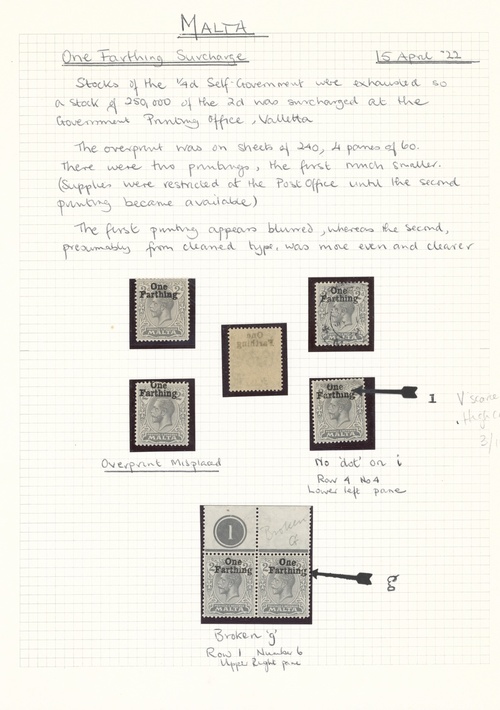 MALTA
One Farthing Surcharge
15 April '22
Stocks of the ¼d Self-Government were exhausted so
a stock of 250,000 of the 2d was surcharged at the
Government Printing Office, Valletta
The overprint was on sheets of 240, 4 panes of 60.
There were two printings, the first much smaller.
(Supplies were restricted at the Post Office until the second
printing became available)
The first printing appears blurred, whereas the second,
presumably from cleaned type, was more even and clearer
One
Farthing
MALTA
One
Farthing
MALTA
One
Farthing
One
Farthing
MALTA
One
Farthing
MALTA
1
V scarce
3/
Overprint Misplaced
No 'dot' on i
Row 4 No 4
Lower left pane
1
Broken
g
One
Farthing
MALTA
One
Farthing
MALTA
g
Broken 'g'
Row 1 Number 6
Upper Right pane